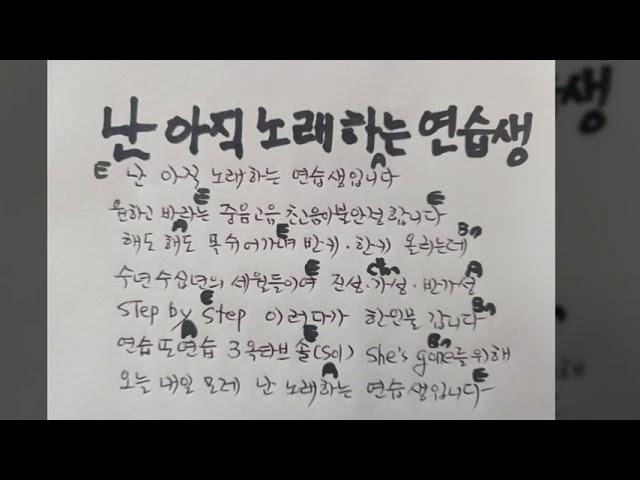 난 아직 노래하는 연습생
E A
난 아직 노래하는 연습생입니다
E E
원하고 바라는 중음고음 초고음이불안정 합니다
A E Bm
해도 해도 목쉬어가며 반키·한키 올리는데
E C#m A
수년수십년의 세월들이여 진성·가성·반가성
E Bm
STep by STep 이러다가 한인물 갑니다
A E Bm
연습또연습 3옥타브 솔(Sol) She's gone를 위해
A E
오늘 내일 모레 난 노래하는 연습생입니다